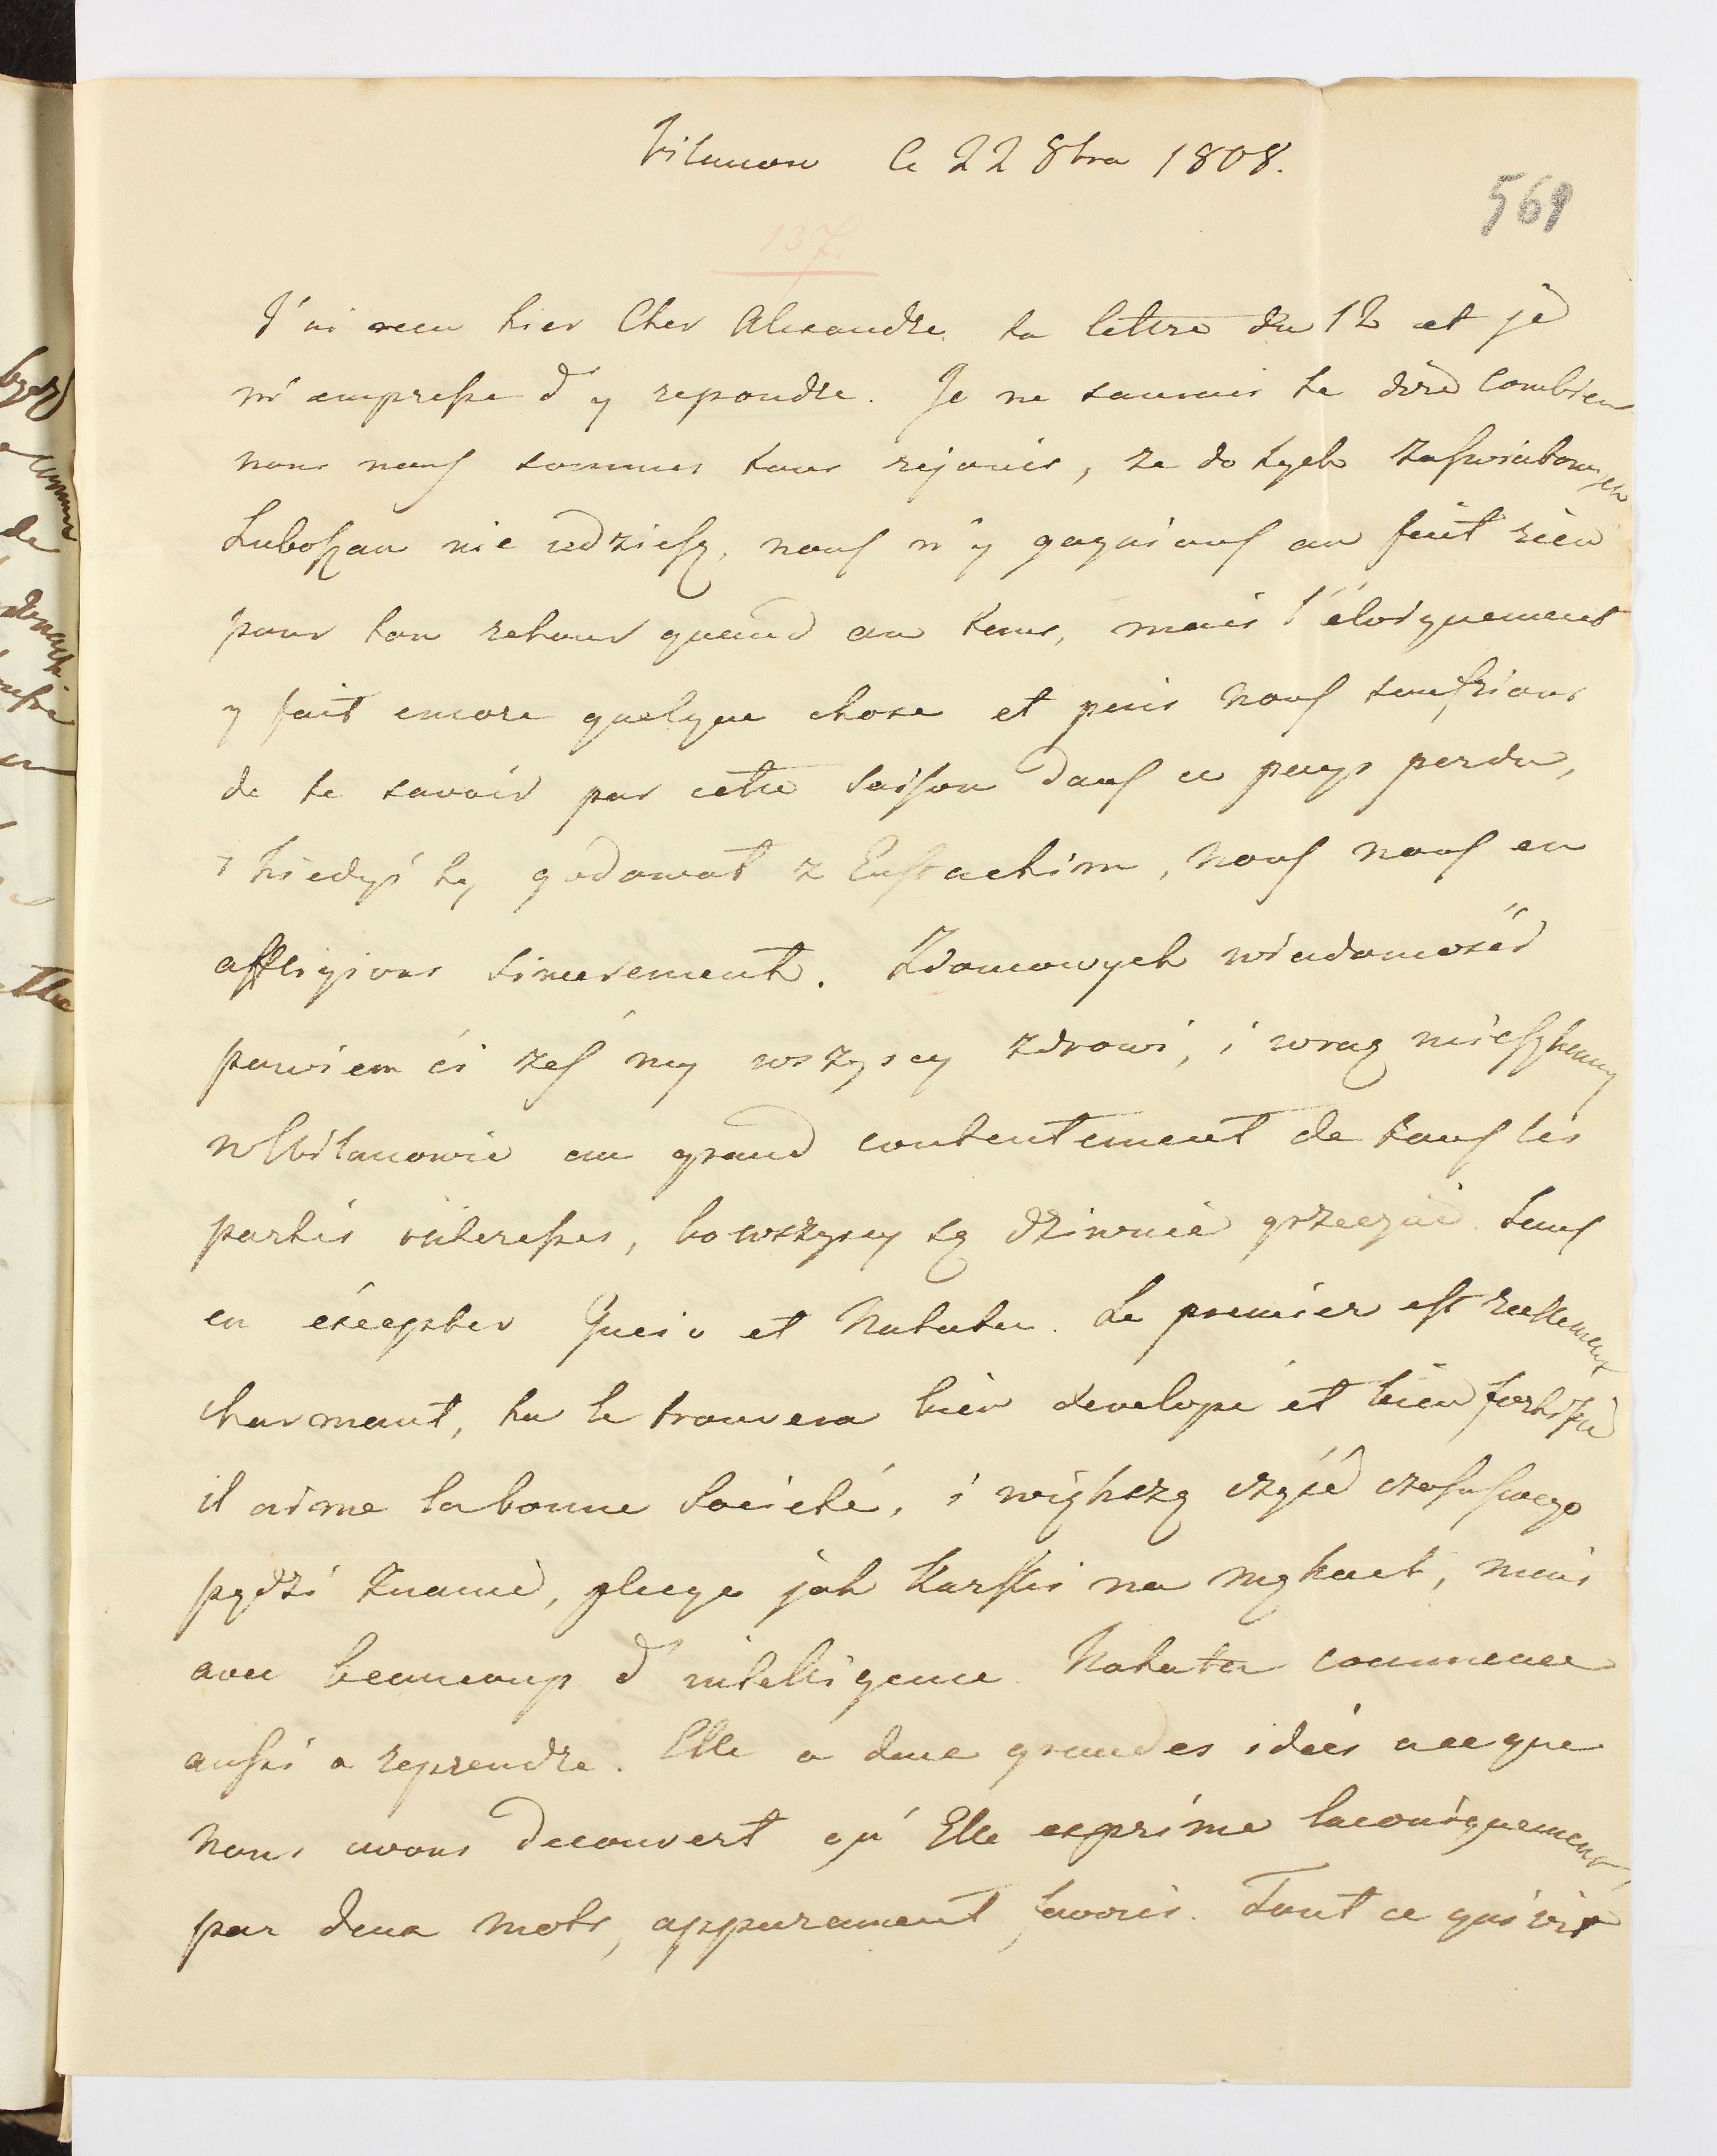 Vilanow le 22 8bre 1808.
569
137.
J'ai recu hier Cher Alexandre ta lettre du 12 et je
m'empresse d'y repondre. Je ne saurais te dire combien
nous nous sommes tous rejouis, ze do tych zasmiaboych
Luboszan nie udziesz, nous n'y gagnions au fait rien
pour ton retour quand au tems, mais l'éloignement
y fait encore quelque chose et puis nous soufrions
de te savoir par cette saison dans ce pays perdu,
i kiedys ty godował z Eustachim, nous nous en
affligions sincerement. Z domowych wiadomości
powiem ci żeś my wszyscy zdrowi, i wraz mieszkamy
w Wilanowie au grand contentement de tous les
partis interesses, bo wszyscy są dziwnie grzeczni sans
en éxcepter Gucio et Natalia. Le premier est reellement
charmant, tu le trouvera bien developé et bien fortifié
il aime la bonne Societé, i większą część czasu swego
pędzi znami, plecye jak Karski na mękach, mais
avec beaucoup d'intelligence. Natalia commence
aussi a reprendre. Elle a deux grandes idées a ce que
nous avons decouvert qu'Elle exprime laconiquement,
par deux mots, apparament favoris. Tout ce qui vit